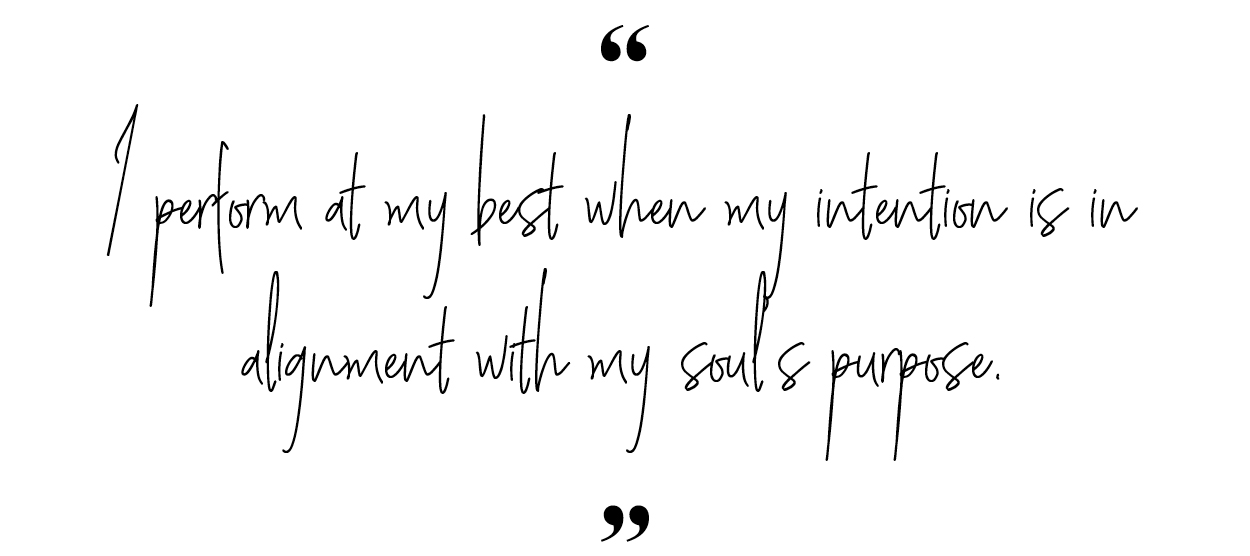 “
I perform at my best when my intention is in
alignment with my soul's purpose.
”